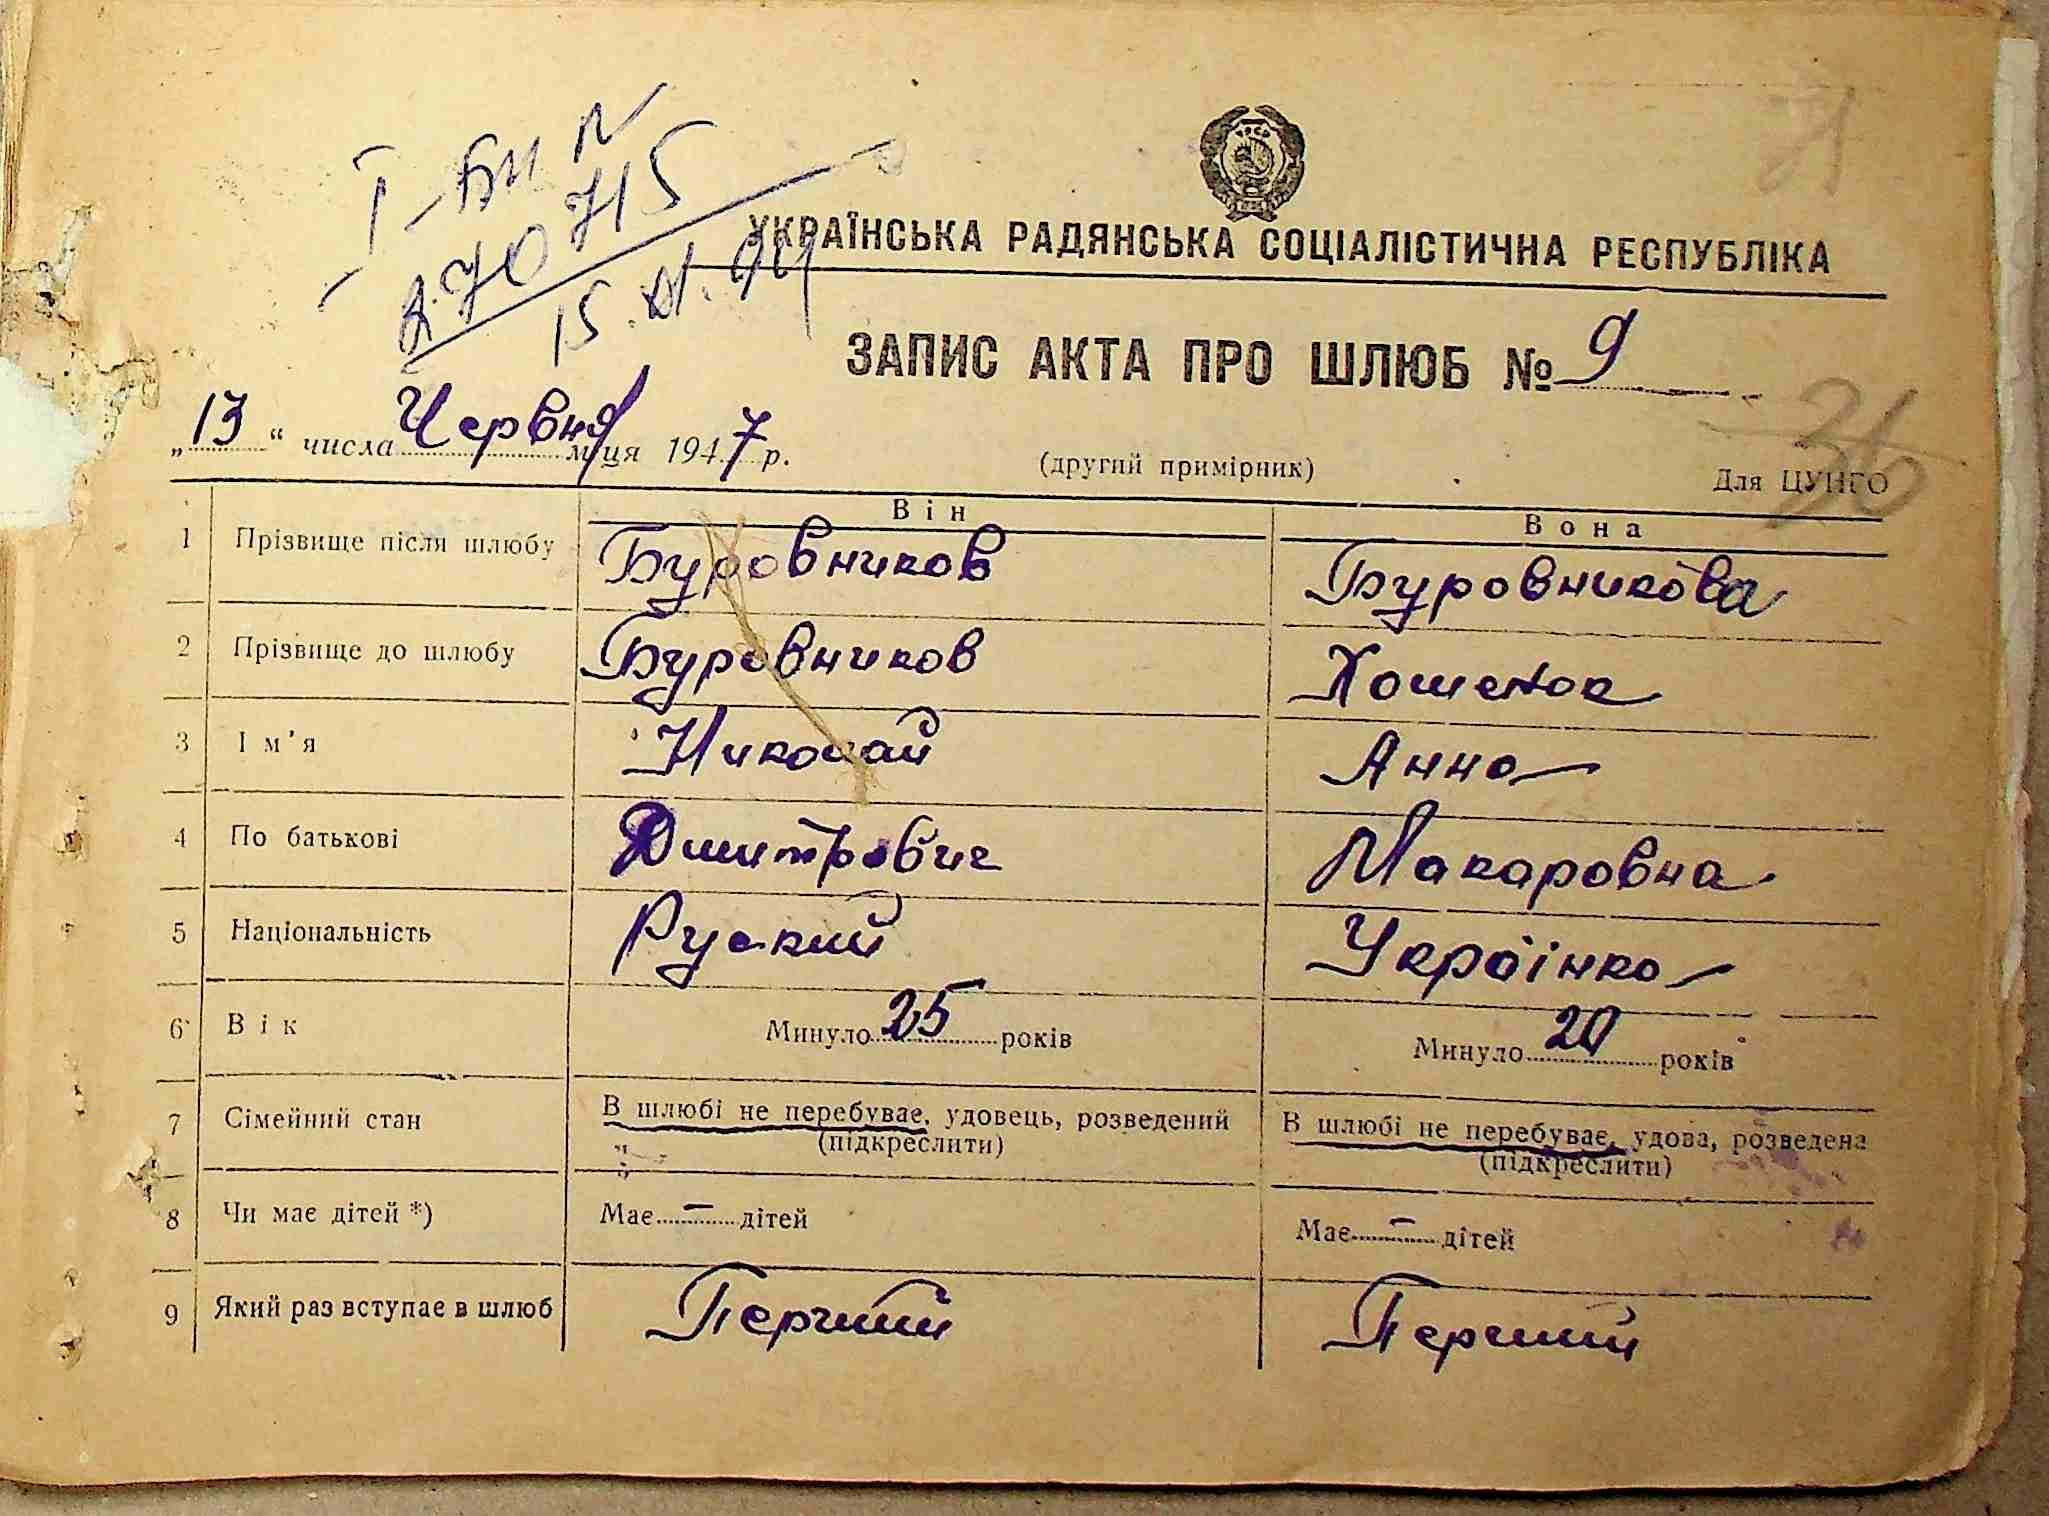 I-БИ №
270715
15.XI.94
УКРАЇНСЬКА РАДЯНСЬКА СОЦІАЛІСТИЧНА РЕСПУБЛІКА
ЗАПИС АКТА ПРО ШЛЮБ № 9
„13“ числа Червня м-ця 1947 р.
(другий примірник)
Для ЦУНГО
36
Він
Вона
1 Прізвище після шлюбу Буровников Буровникова
2 Прізвище до шлюбу Буровников Хошенок
3 Ім'я Николай Анна
4 По батькові Дмитрович Макаровна
5 Національність Руский Українка
6 Вік Минуло 25 років Минуло 20 років
7 Сімейний стан В шлюбі не перебуває, удовець, розведений В шлюбі не перебуває, удова, розведена
(підкреслити) (підкреслити)
8 Чи має дітей *) Має – дітей Має – дітей
9 Який раз вступає в шлюб Перший Перший